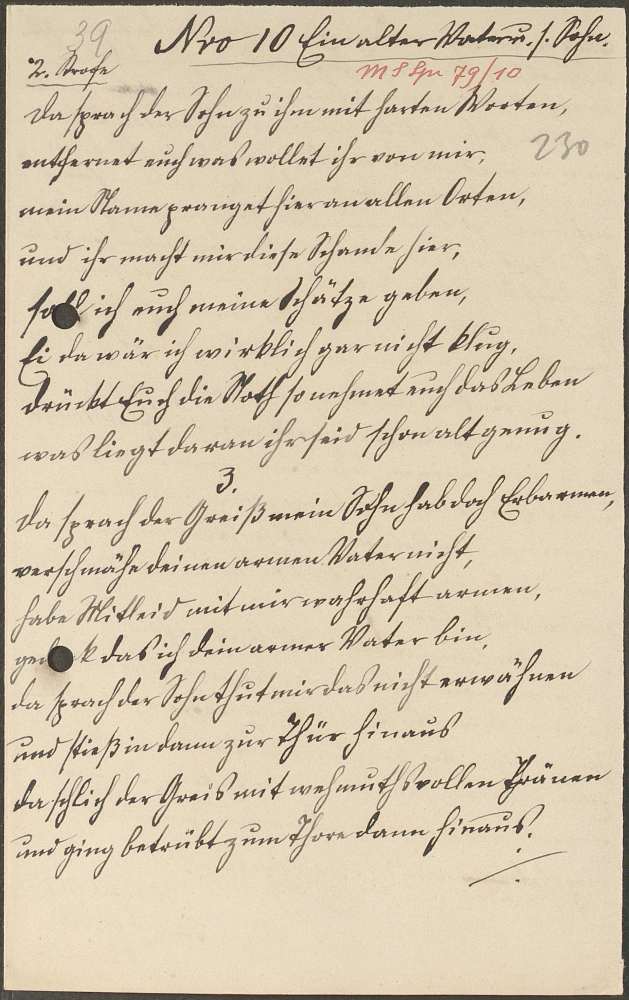 39
Nro 10 Ein alter Vater u. s. Sohn.
2. Strofe
79/10
Da sprach der Sohn zu ihm mit harten Worten,
entfernet euch was wollet ihr von mir,
230
mein Name pranget hier an allen Orten,
und ihr macht mir diese Schande hier,
soll ich euch meine Schätze geben,
Ei da wär ich wirklich gar nicht klug,
drückt Euch die Noth so nehmet euch das Leben
was liegt daran ihr seid schon alt genug.
3.
Da sprach der Greiß mein Sohn hab doch Erbarmen,
verschmähe deinen armen Vater nicht,
habe Mitleid mit mir wahrhaft armen,
gedenk das ich dein armer Vater bin,
da sprach der Sohn thut mir das nicht erwähnen
und stieß in dann zur Thür hinaus
da schlich der Greis mit wehmuthsvollen Thränen
und ging betrübt zum Thore dann hinaus.